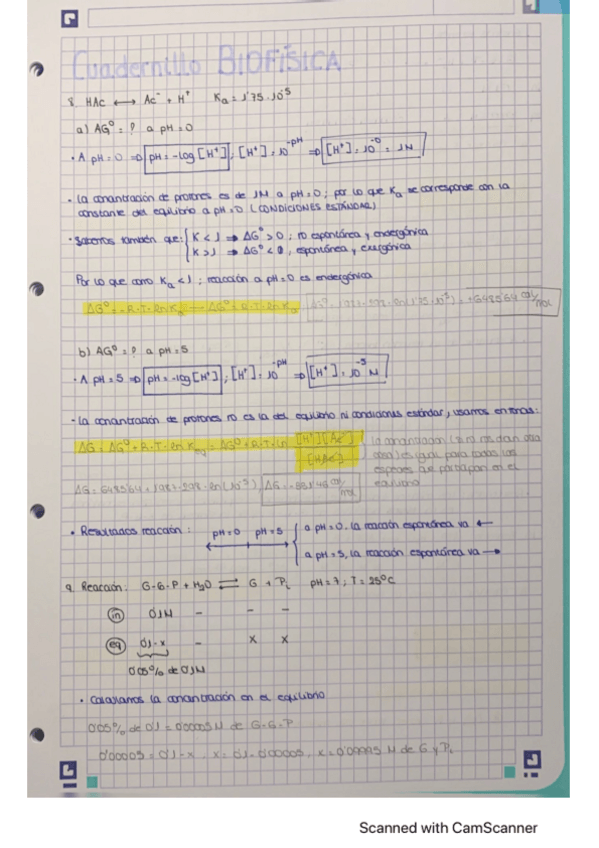 Cuadernillo BIOFÍSICA
8. HAc ⟷ Ac⁻ + H⁺ Ka = 1'75·10⁻⁵
a) ΔG⁰ = ? a pH = 0
· A pH = 0 ⇒ pH = -log [H⁺] ; [H⁺] = 10^-pH ⇒ [H⁺] = 10⁻⁰ = 1N
· La concentración de protones es de 1N a pH = 0 ; por lo que Ka se corresponde con la
constante del equilibrio a pH = 0 (CONDICIONES ESTÁNDAR)
· Sabemos también que: { K < 1 ⇒ ΔG⁰ > 0 ; no espontánea y endergónica
K > 1 ⇒ ΔG⁰ < 0 , espontánea y exergónica
Por lo que como Ka < 1 ; reacción a pH = 0 es endergónica
ΔG⁰ = -R·T·ln Ka ΔG⁰ = R·T·ln Ka ΔG⁰ = 1'987·298·ln (1'75·10⁻⁵) = +6485'64 cal/mol
b) ΔG⁰ = ? a pH = 5
· A pH = 5 ⇒ pH = -log [H⁺] ; [H⁺] = 10^-pH ⇒ [H⁺] = 10⁻⁵ N
· La concentración de protones no es la del equilibrio ni condiciones estándar, usamos entonces:
ΔG = ΔG⁰ + R·T·ln Keq = ΔG⁰ + R·T·ln [H⁺][Ac⁻] / [HAc] la concentración (si no nos dicen otra
cosa) es igual para todas las
especies que participan en el
equilibrio
ΔG = 6485'64 + 1'987·298·ln (10⁻⁵) ΔG = -331'46 cal/mol
· Resultados reacción : pH=0 pH=5 { a pH = 0, la reacción espontánea va ←
a pH = 5, la reacción espontánea va →
9. Reacción: G-6-P + H₂O ⇌ G + Pi pH = 7 ; T = 25ºC
(in) 0'1N - - -
(eq) 0'1-x - x x
0'05% de 0'1N
· Calculamos la concentración en el equilibrio
0'05% de 0'1 = 0'00005 M de G-6-P
0'00005 = 0'1 - x , x = 0'1 - 0'00005 , x = 0'09995 M de G y Pi
Scanned with CamScanner